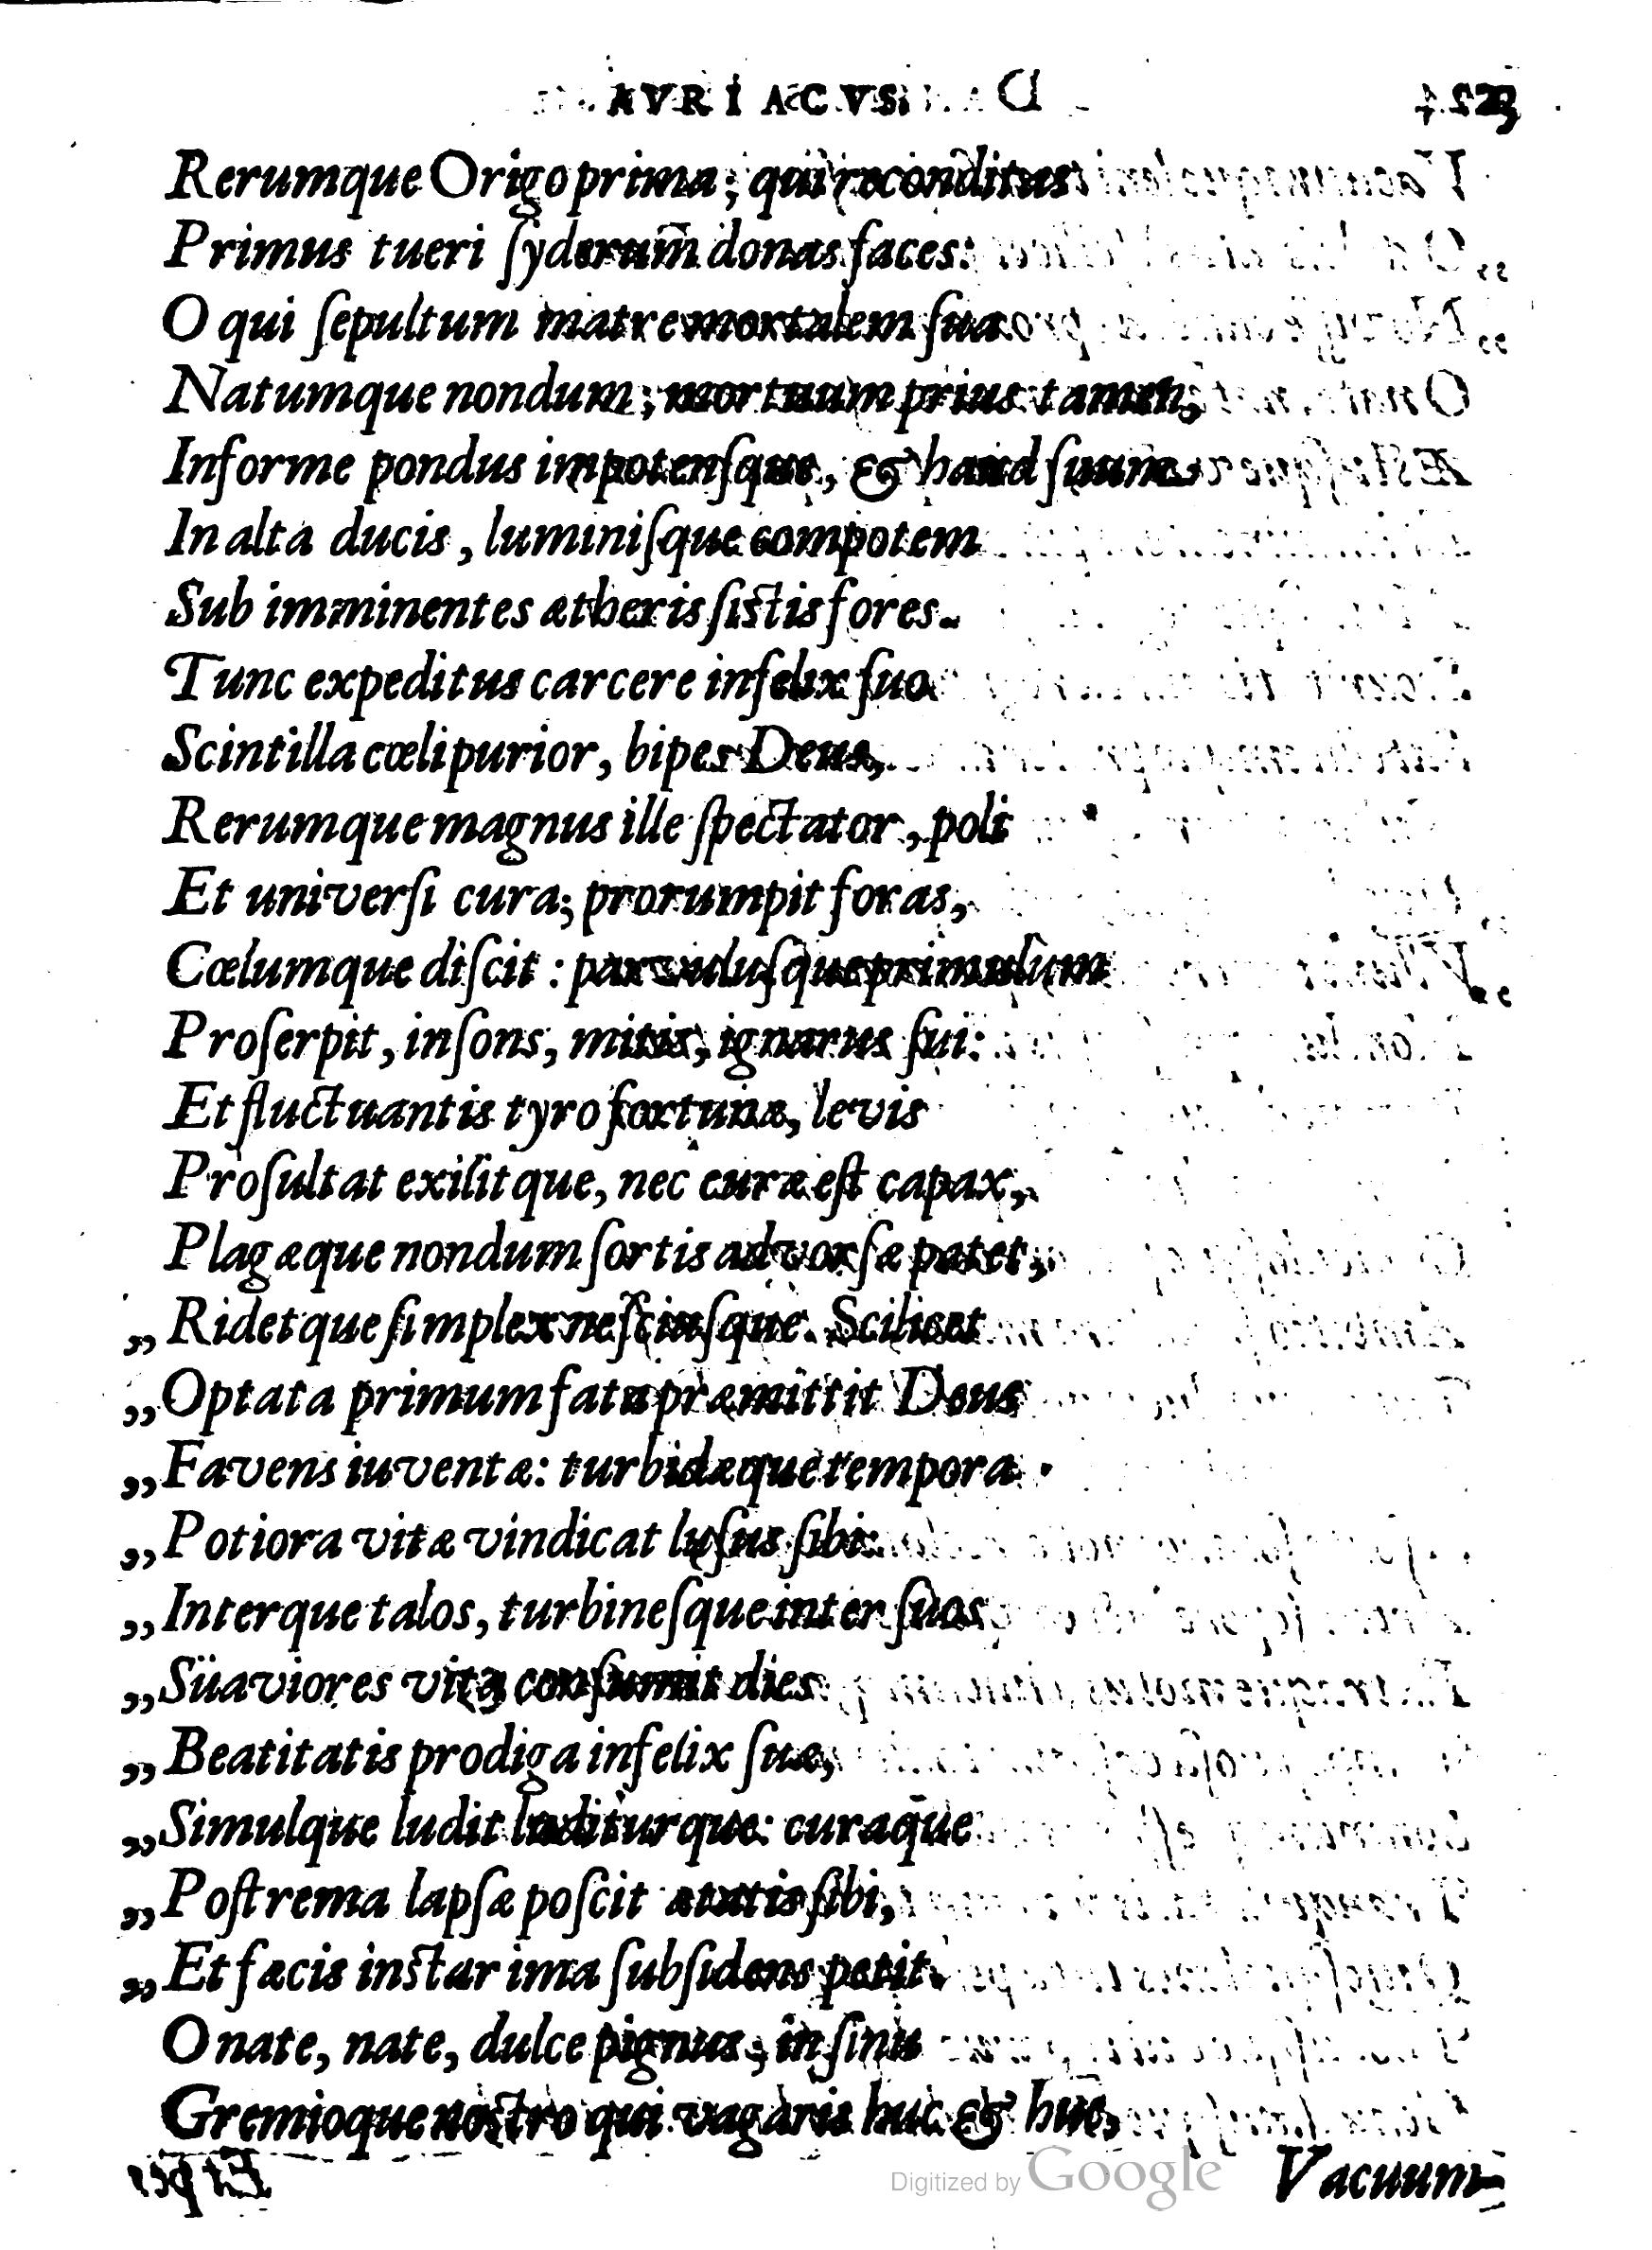 AVRIACVS.
Rerumque Origo prima; qui reconditus
Primus tueri ſyderum donas faces:
O qui ſepultum matre mortalem ſua
Natumque nondum; mortuum prius tamen,
Informe pondus impotenſque, & haud ſuum
In alta ducis, luminiſque compotem
Sub imminentes ætheris ſiſtis fores.
Tunc expeditus carcere infelix ſuo
Scintilla cœli purior, bipes Deus,
Rerumque magnus ille ſpectator, poli
Et univerſi cura; prorumpit foras,
Cœlumque diſcit: parvuluſque primulum
Proſerpit, inſons, mitis, ignarus ſui:
Et fluctuantis tyro fortunæ, levis
Proſultat exilitque, nec curæ eſt capax,
Plagæque nondum ſortis advorſæ patet;
„Ridetque ſimplex neſciuſque. Scilicet
„Optata primum fata præmittit Deus
„Favens iuventæ: turbidæque tempora
„Potiora vitæ vindicat luſus ſibi:
„Interque talos, turbineſque inter ſuos
„Süaviores vitæ conſumit dies
„Beatitatis prodiga infelix ſuæ,
„Simulque ludit luditurque: curaque
„Poſtrema lapſæ poſcit ætatis ſibi,
„Et fæcis inſtar ima ſubſidens petit.
O nate, nate, dulce pignus; in ſinu
Gremioque noſtro qui vagaris huc & huc,
Digitized by Google
Vacuum-